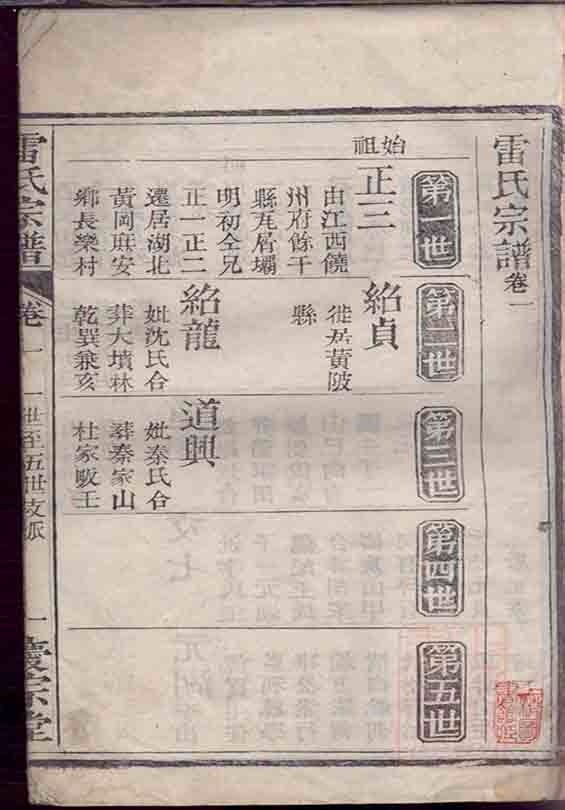 雷氏宗譜卷一
第一世
第二世
第三世
第四世
第五世
始祖
正三
由江西饒
州府餘干
縣瓦屑壩
明初仝兄
正一正二
遷居湖北
黃岡麻安
鄉長樂村
紹貞
徙居黃陂
縣
紹龍
妣沈氏合
葬大墳林
乾巽兼亥
道興
妣秦氏合
葬秦家山
杜家畈王
雷氏宗譜
卷一
一世至五世支派
一
慶宗堂